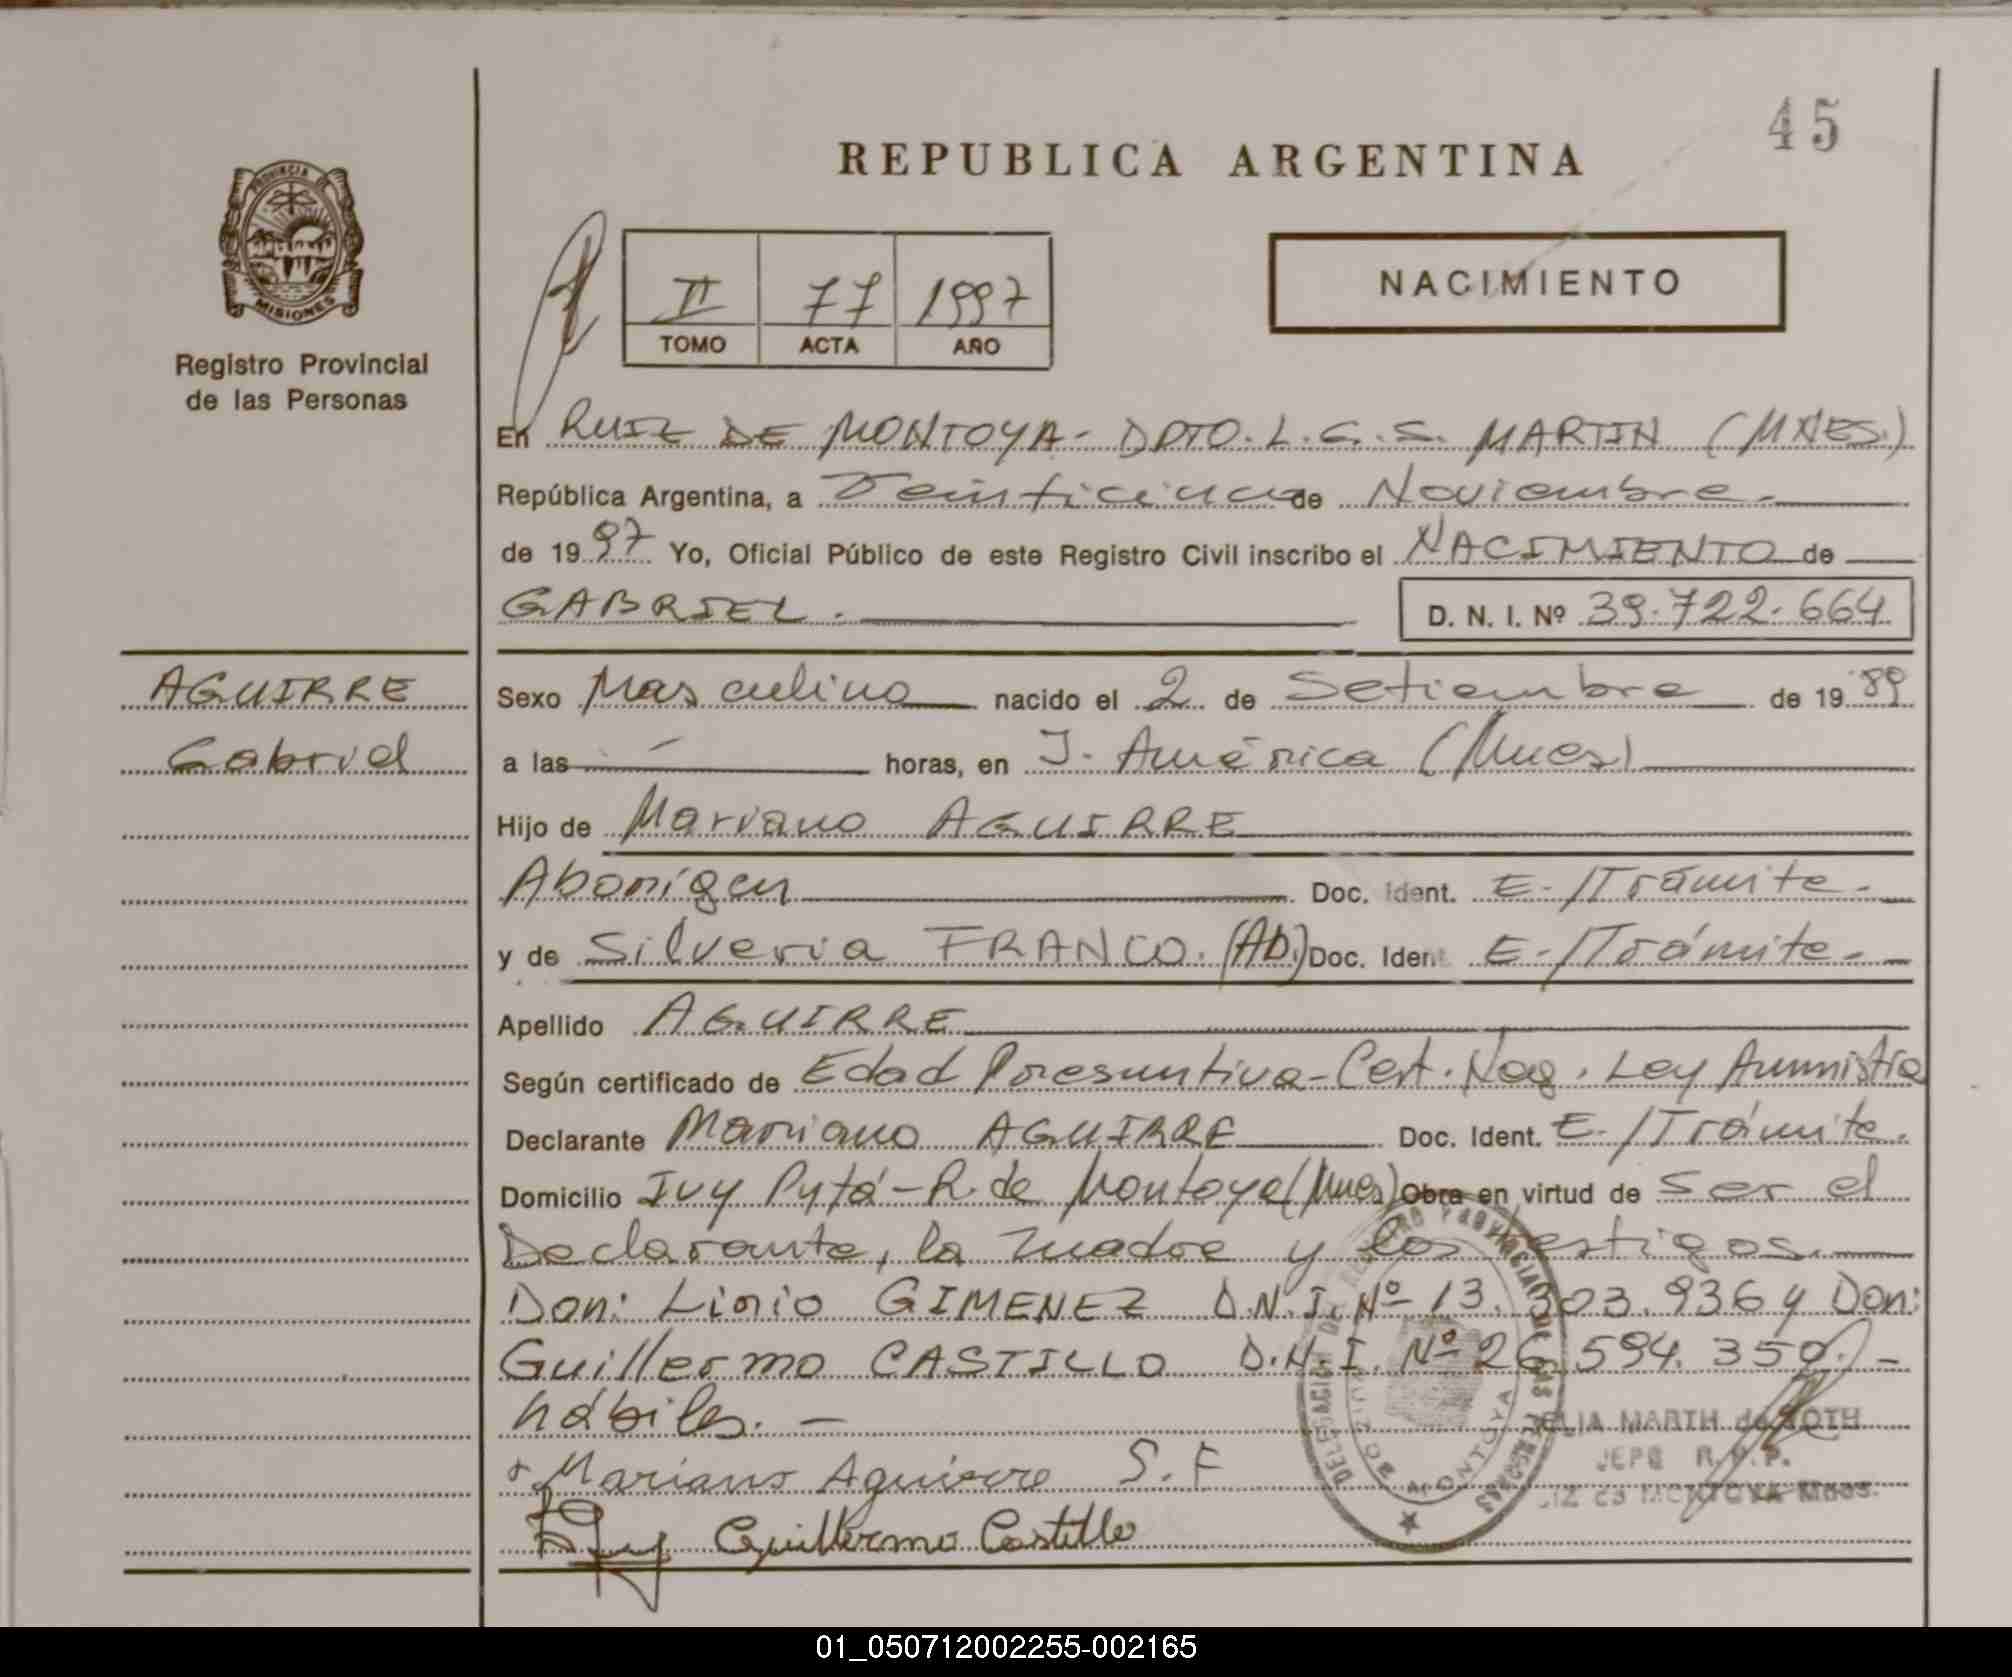 45
REPUBLICA ARGENTINA
PROVINCIA DE
MISIONES
Registro Provincial
de las Personas
II 77 1997
TOMO ACTA AÑO
NACIMIENTO
En RUIZ DE MONTOYA - DPTO. L. G. S. MARTIN (MNES.)
República Argentina, a Veinticinco de Noviembre.
de 1997 Yo, Oficial Público de este Registro Civil inscribo el NACIMIENTO de
GABRIEL. D. N. I. Nº 39.722.664
AGUIRRE
Gabriel
Sexo Masculino nacido el 2 de Setiembre de 1989
a las — horas, en J. América (Mnes)
Hijo de Mariano AGUIRRE
Aborígen Doc. Ident. E-/Trámite.
y de Silveria FRANCO. (Ab.) Doc. Ident. E-/Trámite.
Apellido AGUIRRE
Según certificado de Edad Presuntiva - Cert. Neg. Ley Amnistía
Declarante Mariano AGUIRRE Doc. Ident. E-/Trámite.
Domicilio Ivy Pytá - R. de Montoya (Mnes) Obra en virtud de Ser el
Declarante, la madre y los testigos.
Don: Lirio GIMENEZ D.N.I. Nº 13.303.936 y Don:
Guillermo CASTILLO D.N.I. Nº 26.594.350. -
hábiles. -
+ Mariano Aguirre S. F
Guillermo Castillo
MARTH de ROTH
JEFE R.P.P.
RUIZ de MONTOYA Mnes.
01_050712002255-002165